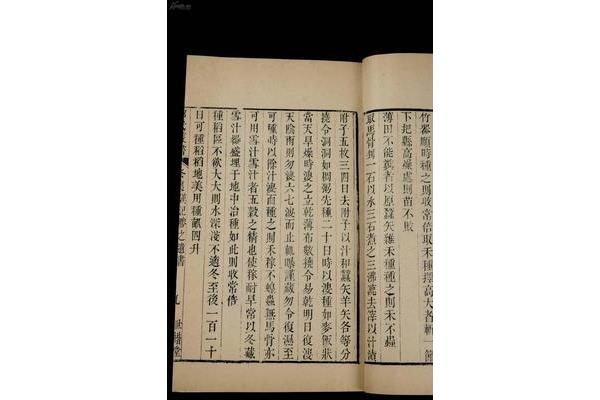 竹器順時種之則收常倍取禾種擇高大者斬一節
下把縣高燥處則苗不敗
薄田不能糞者以原蠶矢雜禾種種之則禾不蟲
取馬骨剉一石以水三石煮之三沸漉去滓以汁漬
附子五枚三四日去附子以汁和蠶矢羊矢各等分
撓令洞洞如稠粥先種二十日時以溲種如麥飯狀
當天旱燥時溲之立乾薄布數撓令易乾明日復溲
天陰雨則勿溲六七溲而止輒曝謹藏勿令復濕至
可種時以餘汁溲而種之則禾稼不蝗蟲無馬骨亦
可用雪汁雪汁者五穀之精也使稼耐旱常以冬藏
雪汁器盛埋于地中治種如此則收常倍
種稻區不欲大大則水深淺不適冬至後一百一十
日可種稻稻地美用種畝四升
勝之遺書 九 世楷堂